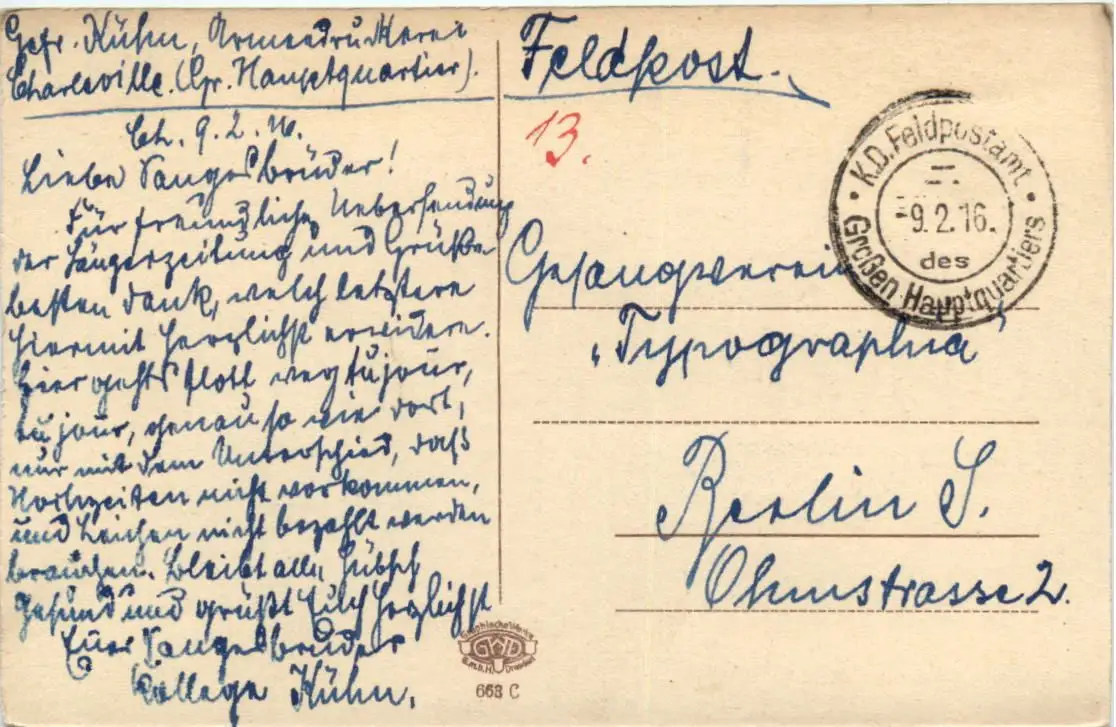 Gefr. Kühn, Armeedruckerei
Charleville. (Gr. Hauptquartier).
Ch. 9.2.16.
Liebe Sangesbrüder!
Für freundliche Uebersendung
der Sängerzeitung und Grüße
besten Dank, welch letztere
hiermit herzlichst erwidere.
Hier gehts flott weg tujour,
tujour, genau so wie dort,
nur mit dem Unterschied, daß
Hochzeiten nicht vorkommen,
und Leichen nicht bezahlt werden
brauchen. Bleibt alle hübsch
gesund und grüßt Euch herzlichst
Euer Sangesbruder
Kollege Kühn.
Feldpost.
13.
K.D. Feldpostamt
-9.2.16.
des
Großen Hauptquartiers
Gesangverein
„Typographia“
Berlin S.
Ohmstrasse 2.
Graphische Werke
GWD
G.m.b.H. Dresden
663 C